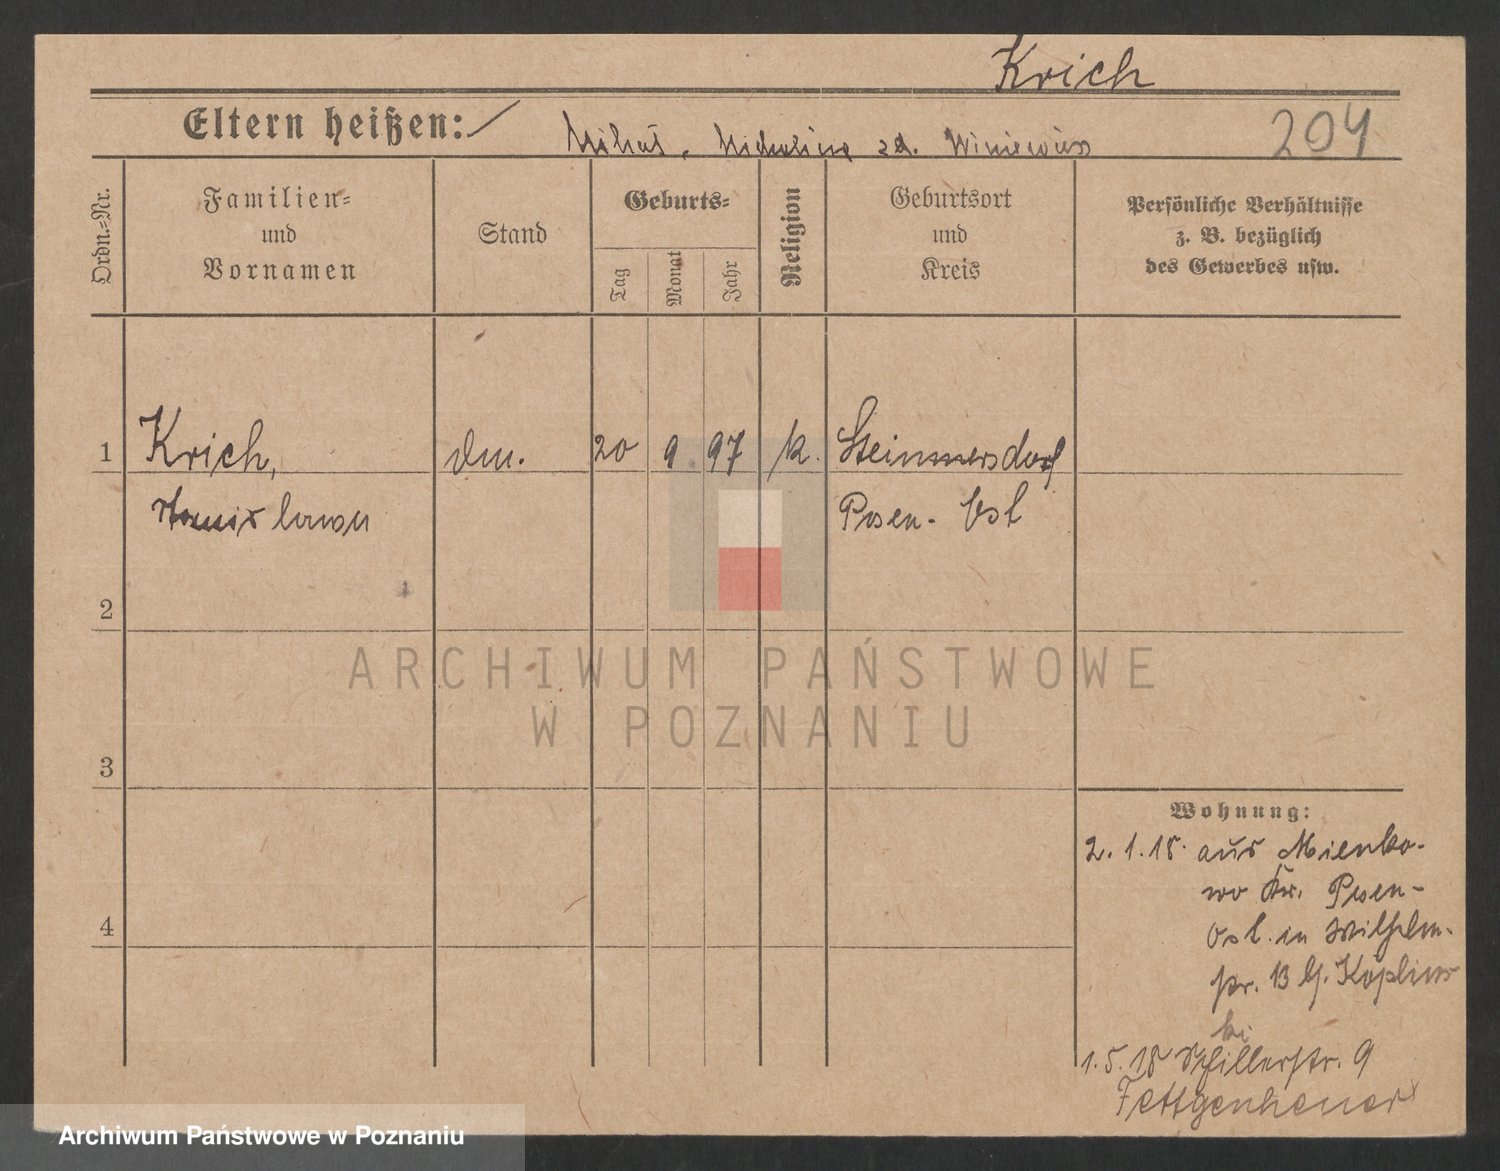 Krich
Eltern heißen:
204
Ordn.=Nr.
Familien=
und
Vornamen
Stand
Geburts=
Tag
Monat
Jahr
Religion
Geburtsort
und
Kreis
Persönliche Verhältnisse
z. B. bezüglich
des Gewerbes usw.
1
Krich,
20
9
97
k.
Steinmersdorf
Posen - Ost
2
3
4
ARCHIWUM PAŃSTWOWE
W POZNANIU
Wohnung:
2.1.18. aus Mienko-
wo Kr. Posen-
Ost. in Wilhelm-
str. 13 b/. Koplins
ki
1.5.18 Schillerstr. 9
Fettgenheuer
Archiwum Państwowe w Poznaniu